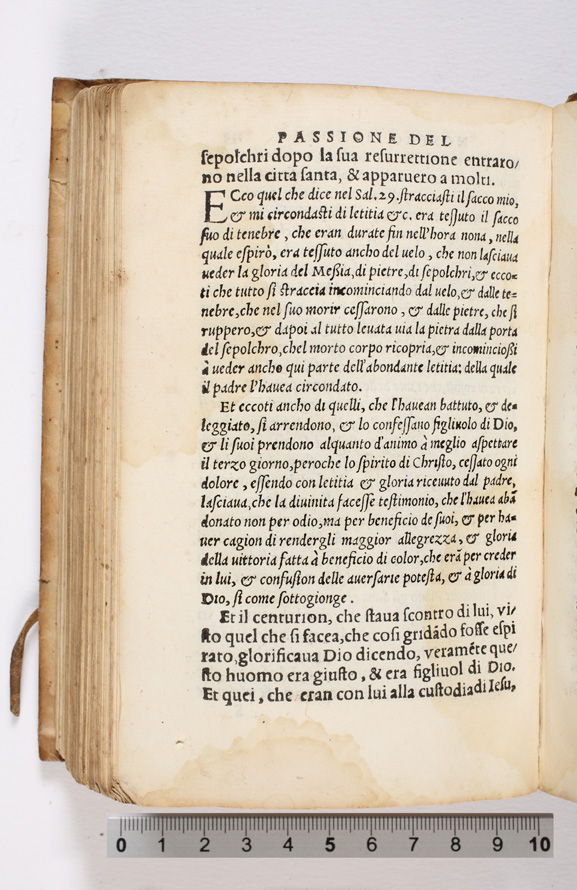 PASSIONE DEL
ſepolchri dopo la ſua reſurrettione entraro/
no nella citta ſanta, & apparuero a molti.
ECco quel che dice nel Sal. 29. ſtracciaſti il ſacco mio,
& mi circondaſti di letitia &c. era teſſuto il ſacco
ſuo di tenebre, che eran durate fin nell'hora nona, nella
quale eſpirò, era teſſuto ancho del uelo, che non laſciaua
ueder la gloria del Meßia, di pietre, di ſepolchri, & ecco-
ti che tutto ſi ſtraccia incominciando dal uelo, & dalle te=
nebre, che nel ſuo morir ceſſarono, & dalle pietre, che ſi
ruppero, & dapoi al tutto leuata uia la pietra dalla porta
del ſepolchro, chel morto corpo ricopria, & incomincioßi
à ueder ancho qui parte dell'abondante letitia: della quale
il padre l'hauea circondato.
Et eccoti ancho di quelli, che l'hauean battuto, & de=
leggiato, ſi arrendono, & lo confeſſano figliuolo di Dio,
& li ſuoi prendono alquanto d'animo à meglio aſpettare
il terzo giorno, peroche lo ſpirito di Chriſto, ceſſato ogni
dolore, eſſendo con letitia & gloria riceuuto dal padre,
laſciaua, che la diuinita faceſſe teſtimonio, che l'hauea abã
donato non per odio, ma per beneficio de ſuoi, & per ha=
uer cagion di rendergli maggior allegrezza, & gloria
della uittoria fatta à beneficio di color, che erã per creder
in lui, & confuſion delle auerſarie poteſta, & à gloria di
DIO, ſi come ſottogionge.
Et il centurion, che ſtaua ſcontro di lui, vi/
ſto quel che ſi facea, che coſi gridãdo foſſe eſpi
rato, glorificaua Dio dicendo, veramẽte que/
ſto huomo era giuſto, & era figliuol di DIO.
Et quei, che eran con lui alla cuſtodia di Ieſu,
0 1 2 3 4 5 6 7 8 9 10